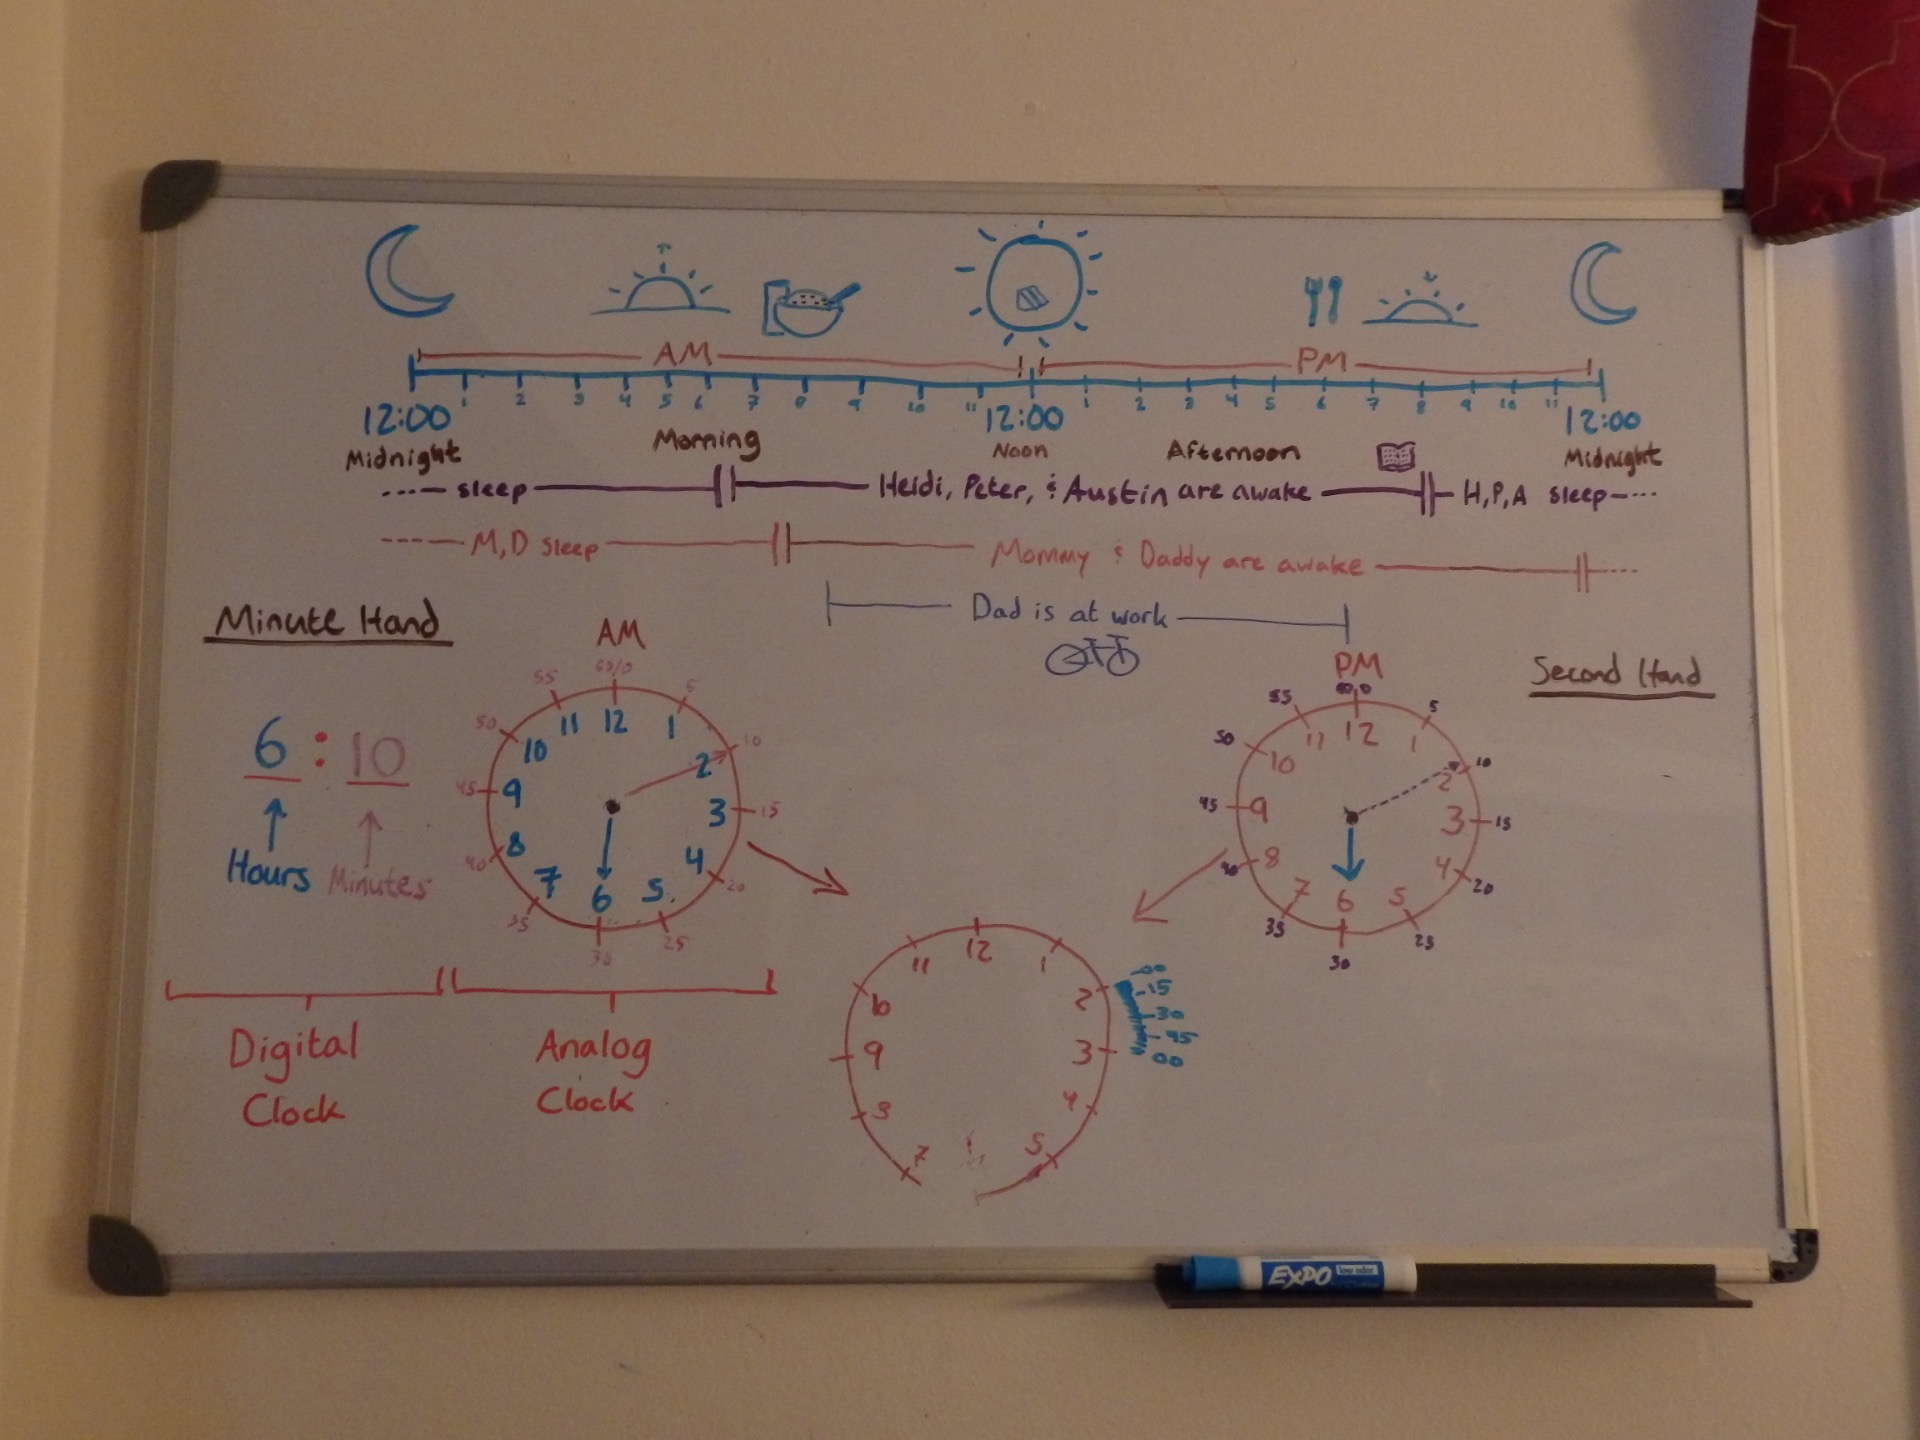 AM PM
1 2 3 4 5 6 7 8 9 10 11 1 2 3 4 5 6 7 8 9 10 11
12:00 12:00 12:00
Midnight Morning Noon Afternoon Midnight
sleep Heidi, Peter, & Austin are awake H,P,A sleep
M,D sleep Mommy & Daddy are awake
Dad is at work
Minute Hand
6 : 10
Hours Minutes
AM
60/0 5 10 15 20 25 30 35 40 45 50 55
12 1 2 3 4 5 6 7 8 9 10 11
PM
5 10 15 20 25 30 35 40 45 50 55
12 1 2 3 4 5 6 7 8 9 10 11
Second Hand
Digital
Clock
Analog
Clock
12 1 2 3 4 5 7 9 10 11
15
30
45
00
EXPO low odor